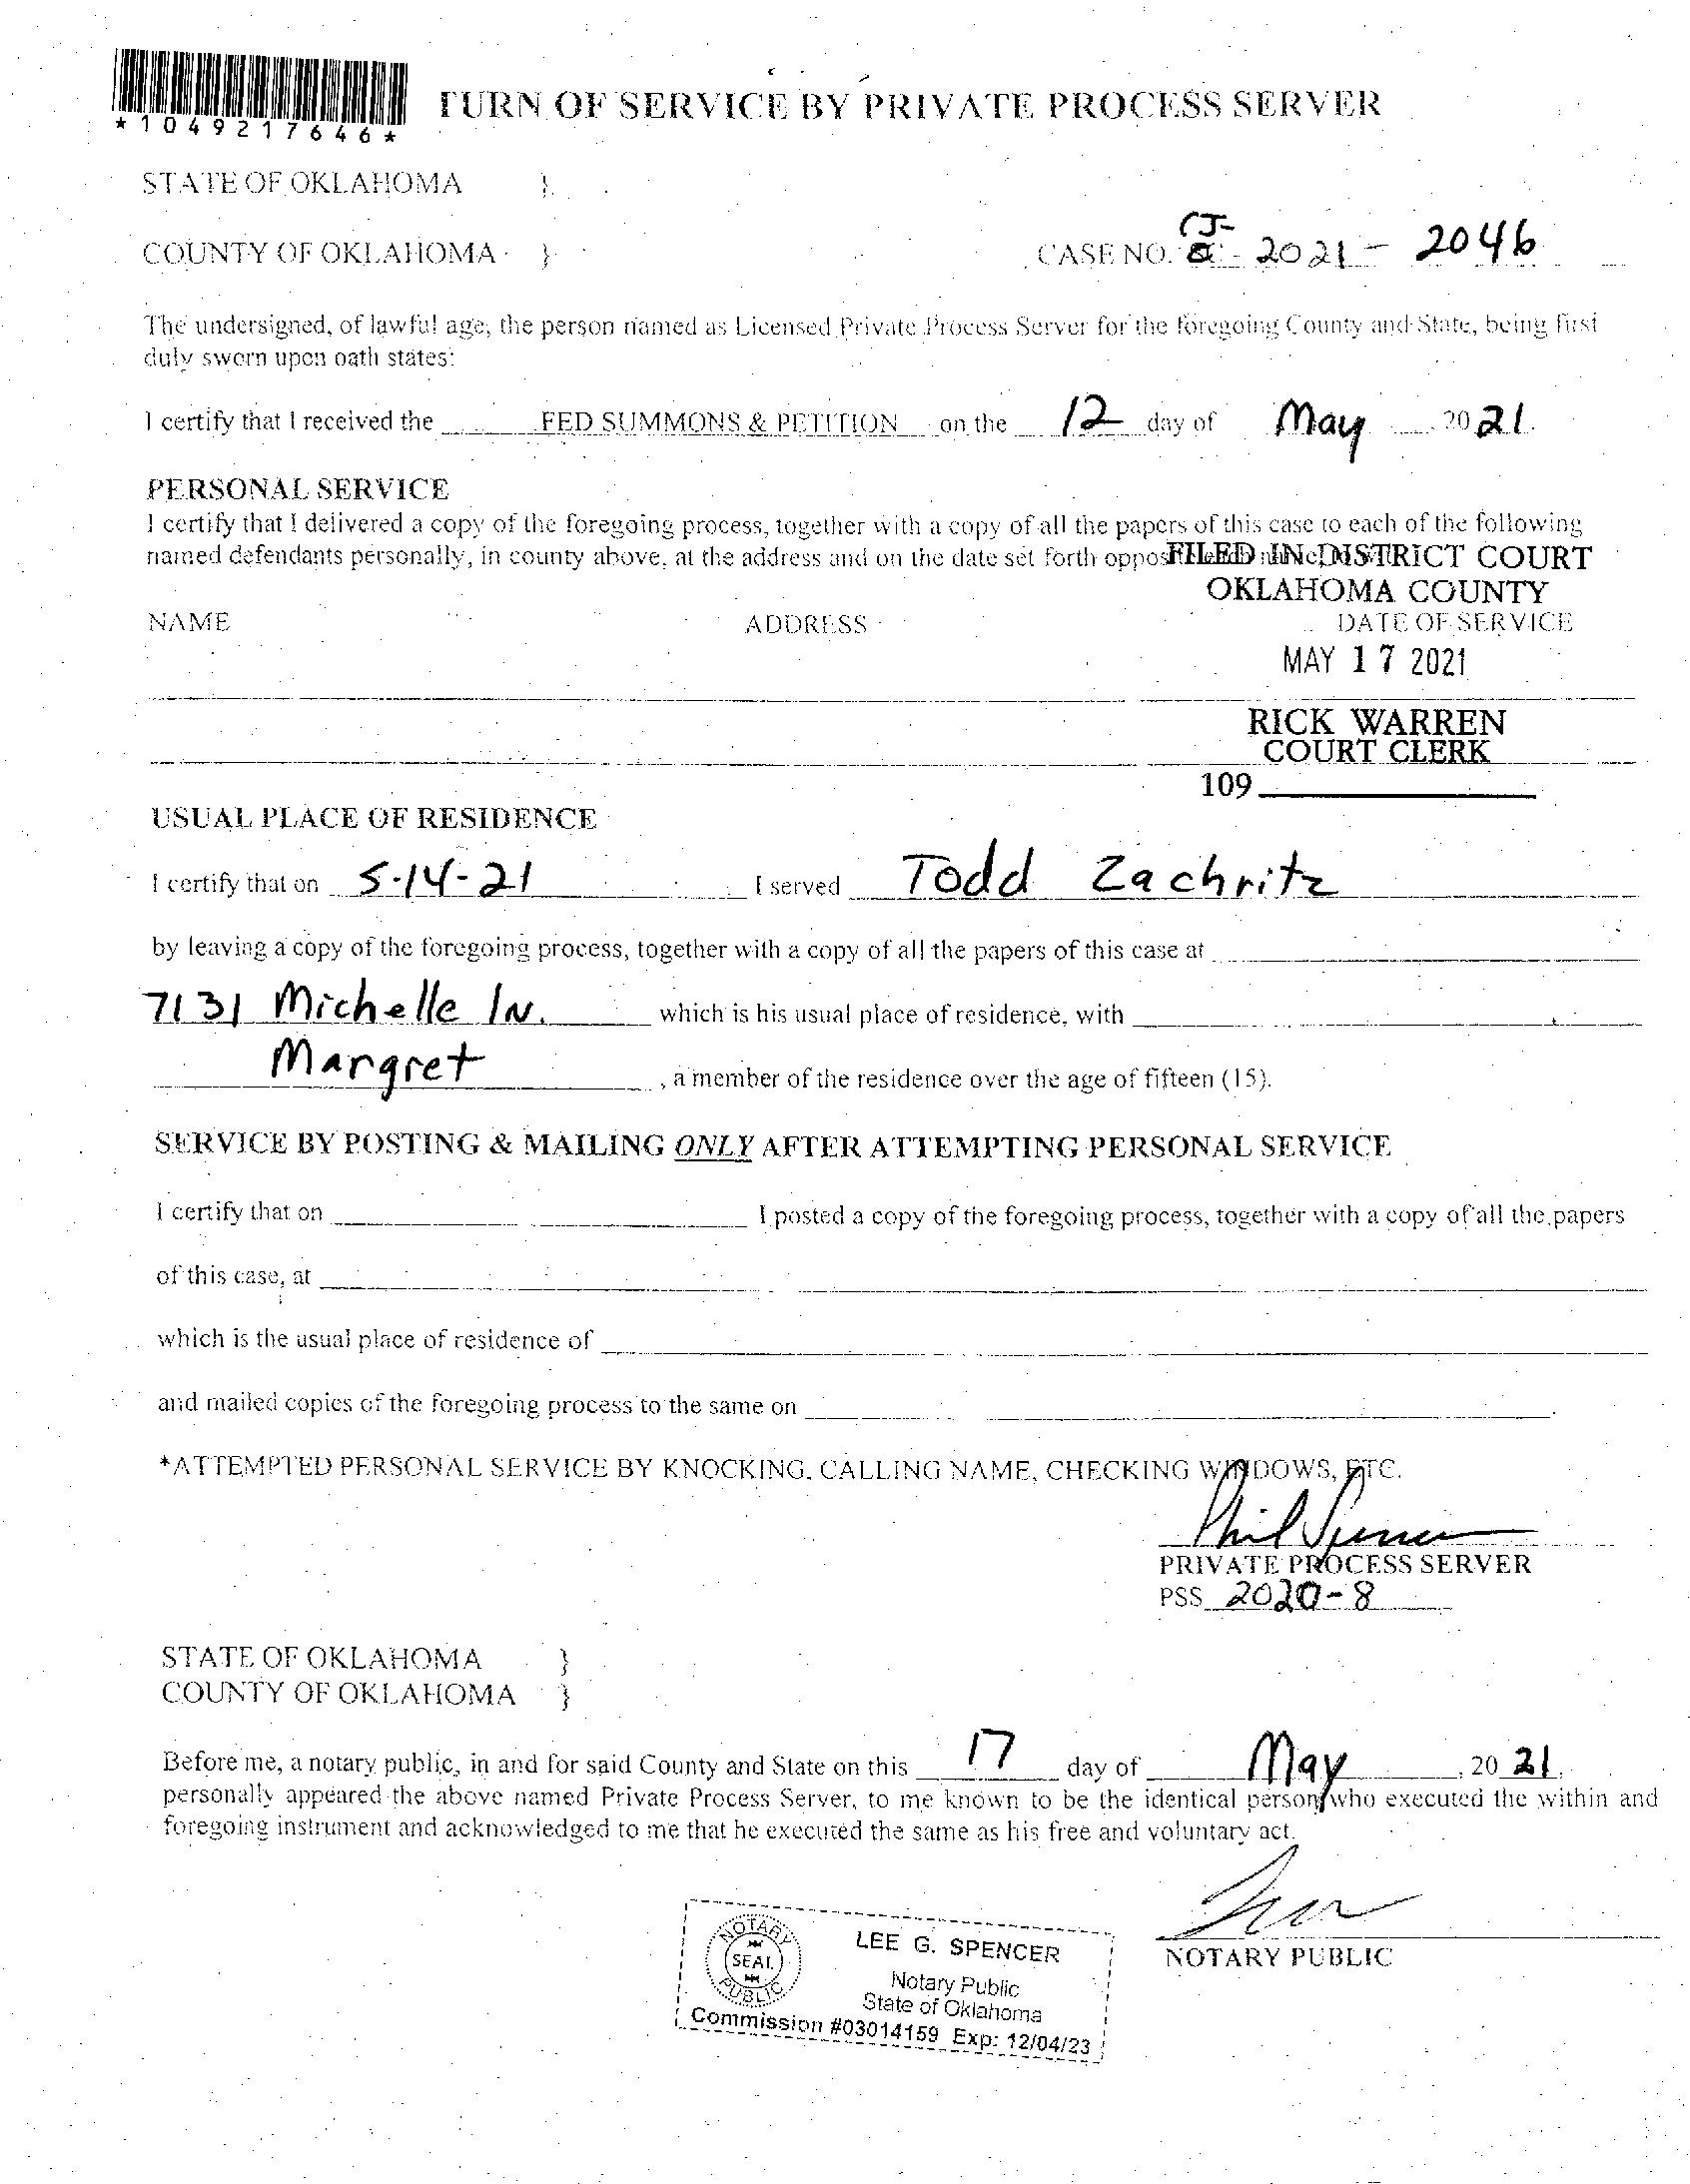 *1049217646*
TURN OF SERVICE BY PRIVATE PROCESS SERVER
STATE OF OKLAHOMA }
COUNTY OF OKLAHOMA } CASE NO. CJ- 2021 - 2046
The undersigned, of lawful age, the person named as Licensed Private Process Server for the foregoing County and State, being first
duly sworn upon oath states:
I certify that I received the FED SUMMONS & PETITION on the 12 day of May 2021.
PERSONAL SERVICE
I certify that I delivered a copy of the foregoing process, together with a copy of all the papers of this case to each of the following
named defendants personally, in county above, at the address and on the date set forth
FILED IN DISTRICT COURT
OKLAHOMA COUNTY
NAME ADDRESS DATE OF SERVICE
MAY 17 2021
RICK WARREN
COURT CLERK
109
USUAL PLACE OF RESIDENCE
I certify that on 5-14-21 I served Todd Zachritz
by leaving a copy of the foregoing process, together with a copy of all the papers of this case at
7131 Michelle LN. which is his usual place of residence, with
Margret, a member of the residence over the age of fifteen (15).
SERVICE BY POSTING & MAILING ONLY AFTER ATTEMPTING PERSONAL SERVICE
I certify that on I posted a copy of the foregoing process, together with a copy of all the papers
of this case, at
which is the usual place of residence of
and mailed copies of the foregoing process to the same on
*ATTEMPTED PERSONAL SERVICE BY KNOCKING, CALLING NAME, CHECKING WINDOWS, ETC.
Phil Spencer
PRIVATE PROCESS SERVER
PSS 2020-8
STATE OF OKLAHOMA }
COUNTY OF OKLAHOMA }
Before me, a notary public, in and for said County and State on this 17 day of May, 2021,
personally appeared the above named Private Process Server, to me known to be the identical person who executed the within and
foregoing instrument and acknowledged to me that he executed the same as his free and voluntary act.
NOTARY PUBLIC
NOTARY
SEAL
PUBLIC
LEE G. SPENCER
Notary Public
State of Oklahoma
Commission #03014159 Exp: 12/04/23